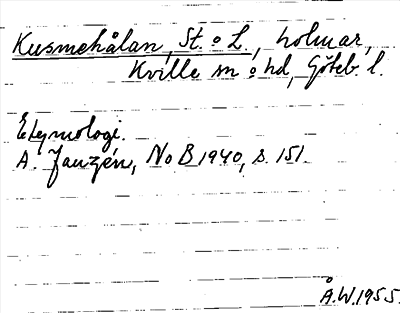 Kusmehålan, St. o L., holmar,
Kville sn o hd, Göteb. l.
Etymologi.
A. Janzén, NoB 1940, s. 151.
Å.W. 1955.